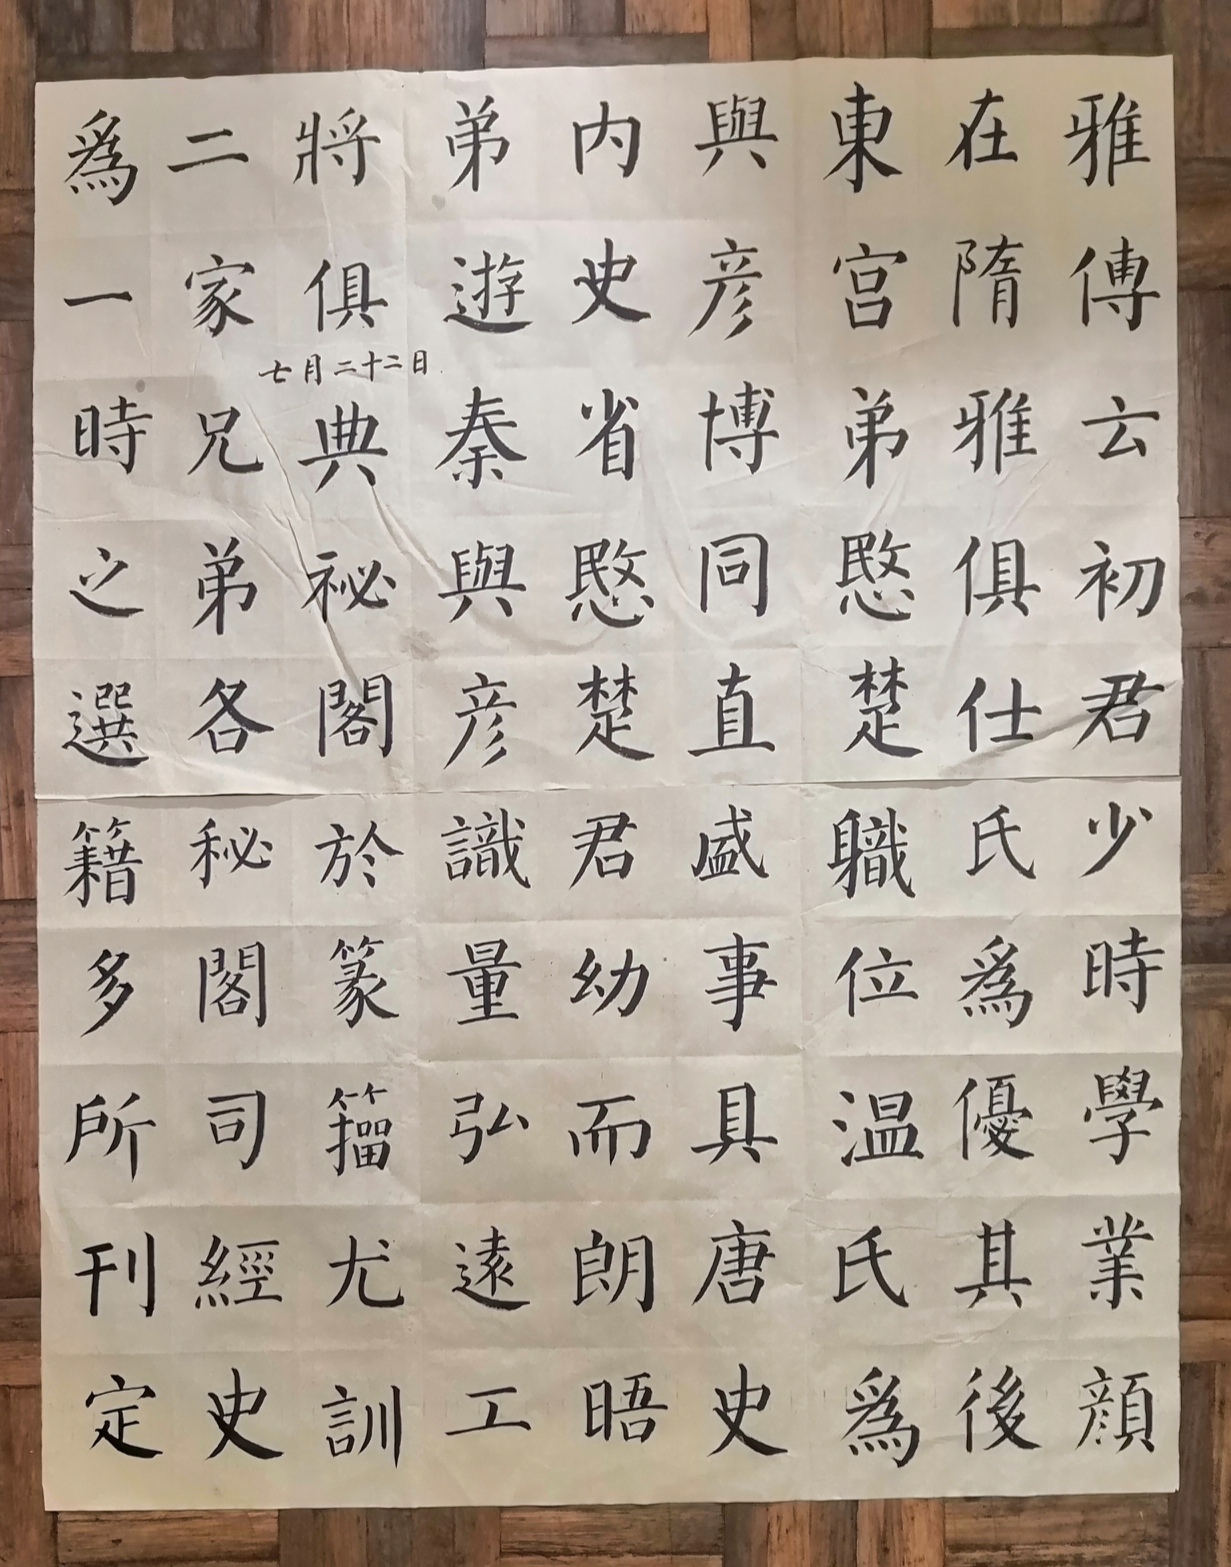 雅傳云初君少時學業顏
在隋雅俱仕氏爲優其後
東宮弟愍楚職位温氏爲
與彦博同直盛事具唐史
内史省愍楚君幼而朗晤
弟遊秦與彦識量弘遠工
將俱典祕閣於篆籀尤訓
二家兄弟各秘閣司經史
爲一時之選籍多所刊定
七月二十二日